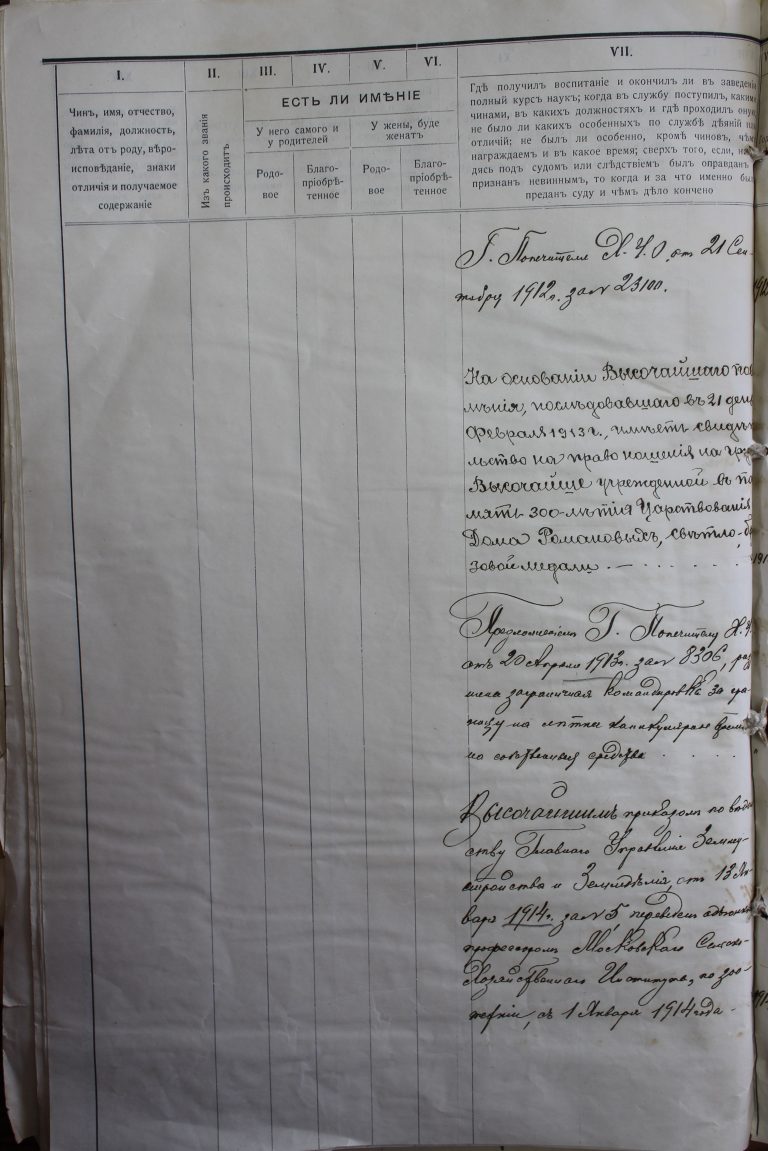 I.
II.
III.
IV.
V.
VI.
VII.
Чинъ, имя, отчество,
фамилія, должность,
лѣта отъ роду, вѣро-
исповѣданіе, знаки
отличія и получаемое
содержаніе
Изъ какого званія
происходитъ
ЕСТЬ ЛИ ИМѢНІЕ
У него самого и
у родителей
У жены, буде
женатъ
Родо-
вое
Благо-
пріобрѣ-
тенное
Родо-
вое
Благо-
пріобрѣ-
тенное
Гдѣ получилъ воспитаніе и окончилъ ли въ заведені
полный курсъ наукъ; когда въ службу поступилъ, каким
чинами, въ какихъ должностяхъ и гдѣ проходилъ оную
не было ли какихъ особенныхъ по службѣ дѣяній
отличій; не былъ ли особенно, кромѣ чиновъ, чѣм
награждаемъ и въ какое время; сверхъ того, если,
дясь подъ судомъ или слѣдствіемъ былъ оправданъ
признанъ невиннымъ, то когда и за что именно был
преданъ суду и чѣмъ дѣло кончено
Г. Попечителя Х. У. О. отъ 21 Сен-
тября 1912 г. за № 23100.
На основаніи Высочайшаго по
мѣнія, послѣдовавшаго въ 21 день
Февраля 1913 г., имѣетъ свидѣт
льство на право ношенія на груд
Высочайше учрежденной въ па
мять 300-лѣтія Царствованія
Дома Романовыхъ, свѣтло-б
зовой медали
Предложеніемъ Г. Попечителя Х. У.
отъ 20 Апрѣля 1913 г. за № 8306, раз
шена заграничная командировка за гра-
ницу на лѣтнее каникулярное время
на собственныя средства
Высочайшимъ приказомъ по вѣдом
ству Главнаго Управленія Землеу-
стройства и Земледѣлія, отъ 13 Ян-
варя 1914 г. за № 5 переведенъ адъюнктъ
профессоромъ Московскаго Сельско-
Хозяйственнаго Института, по зоо-
технiи, съ 1 Января 1914 года